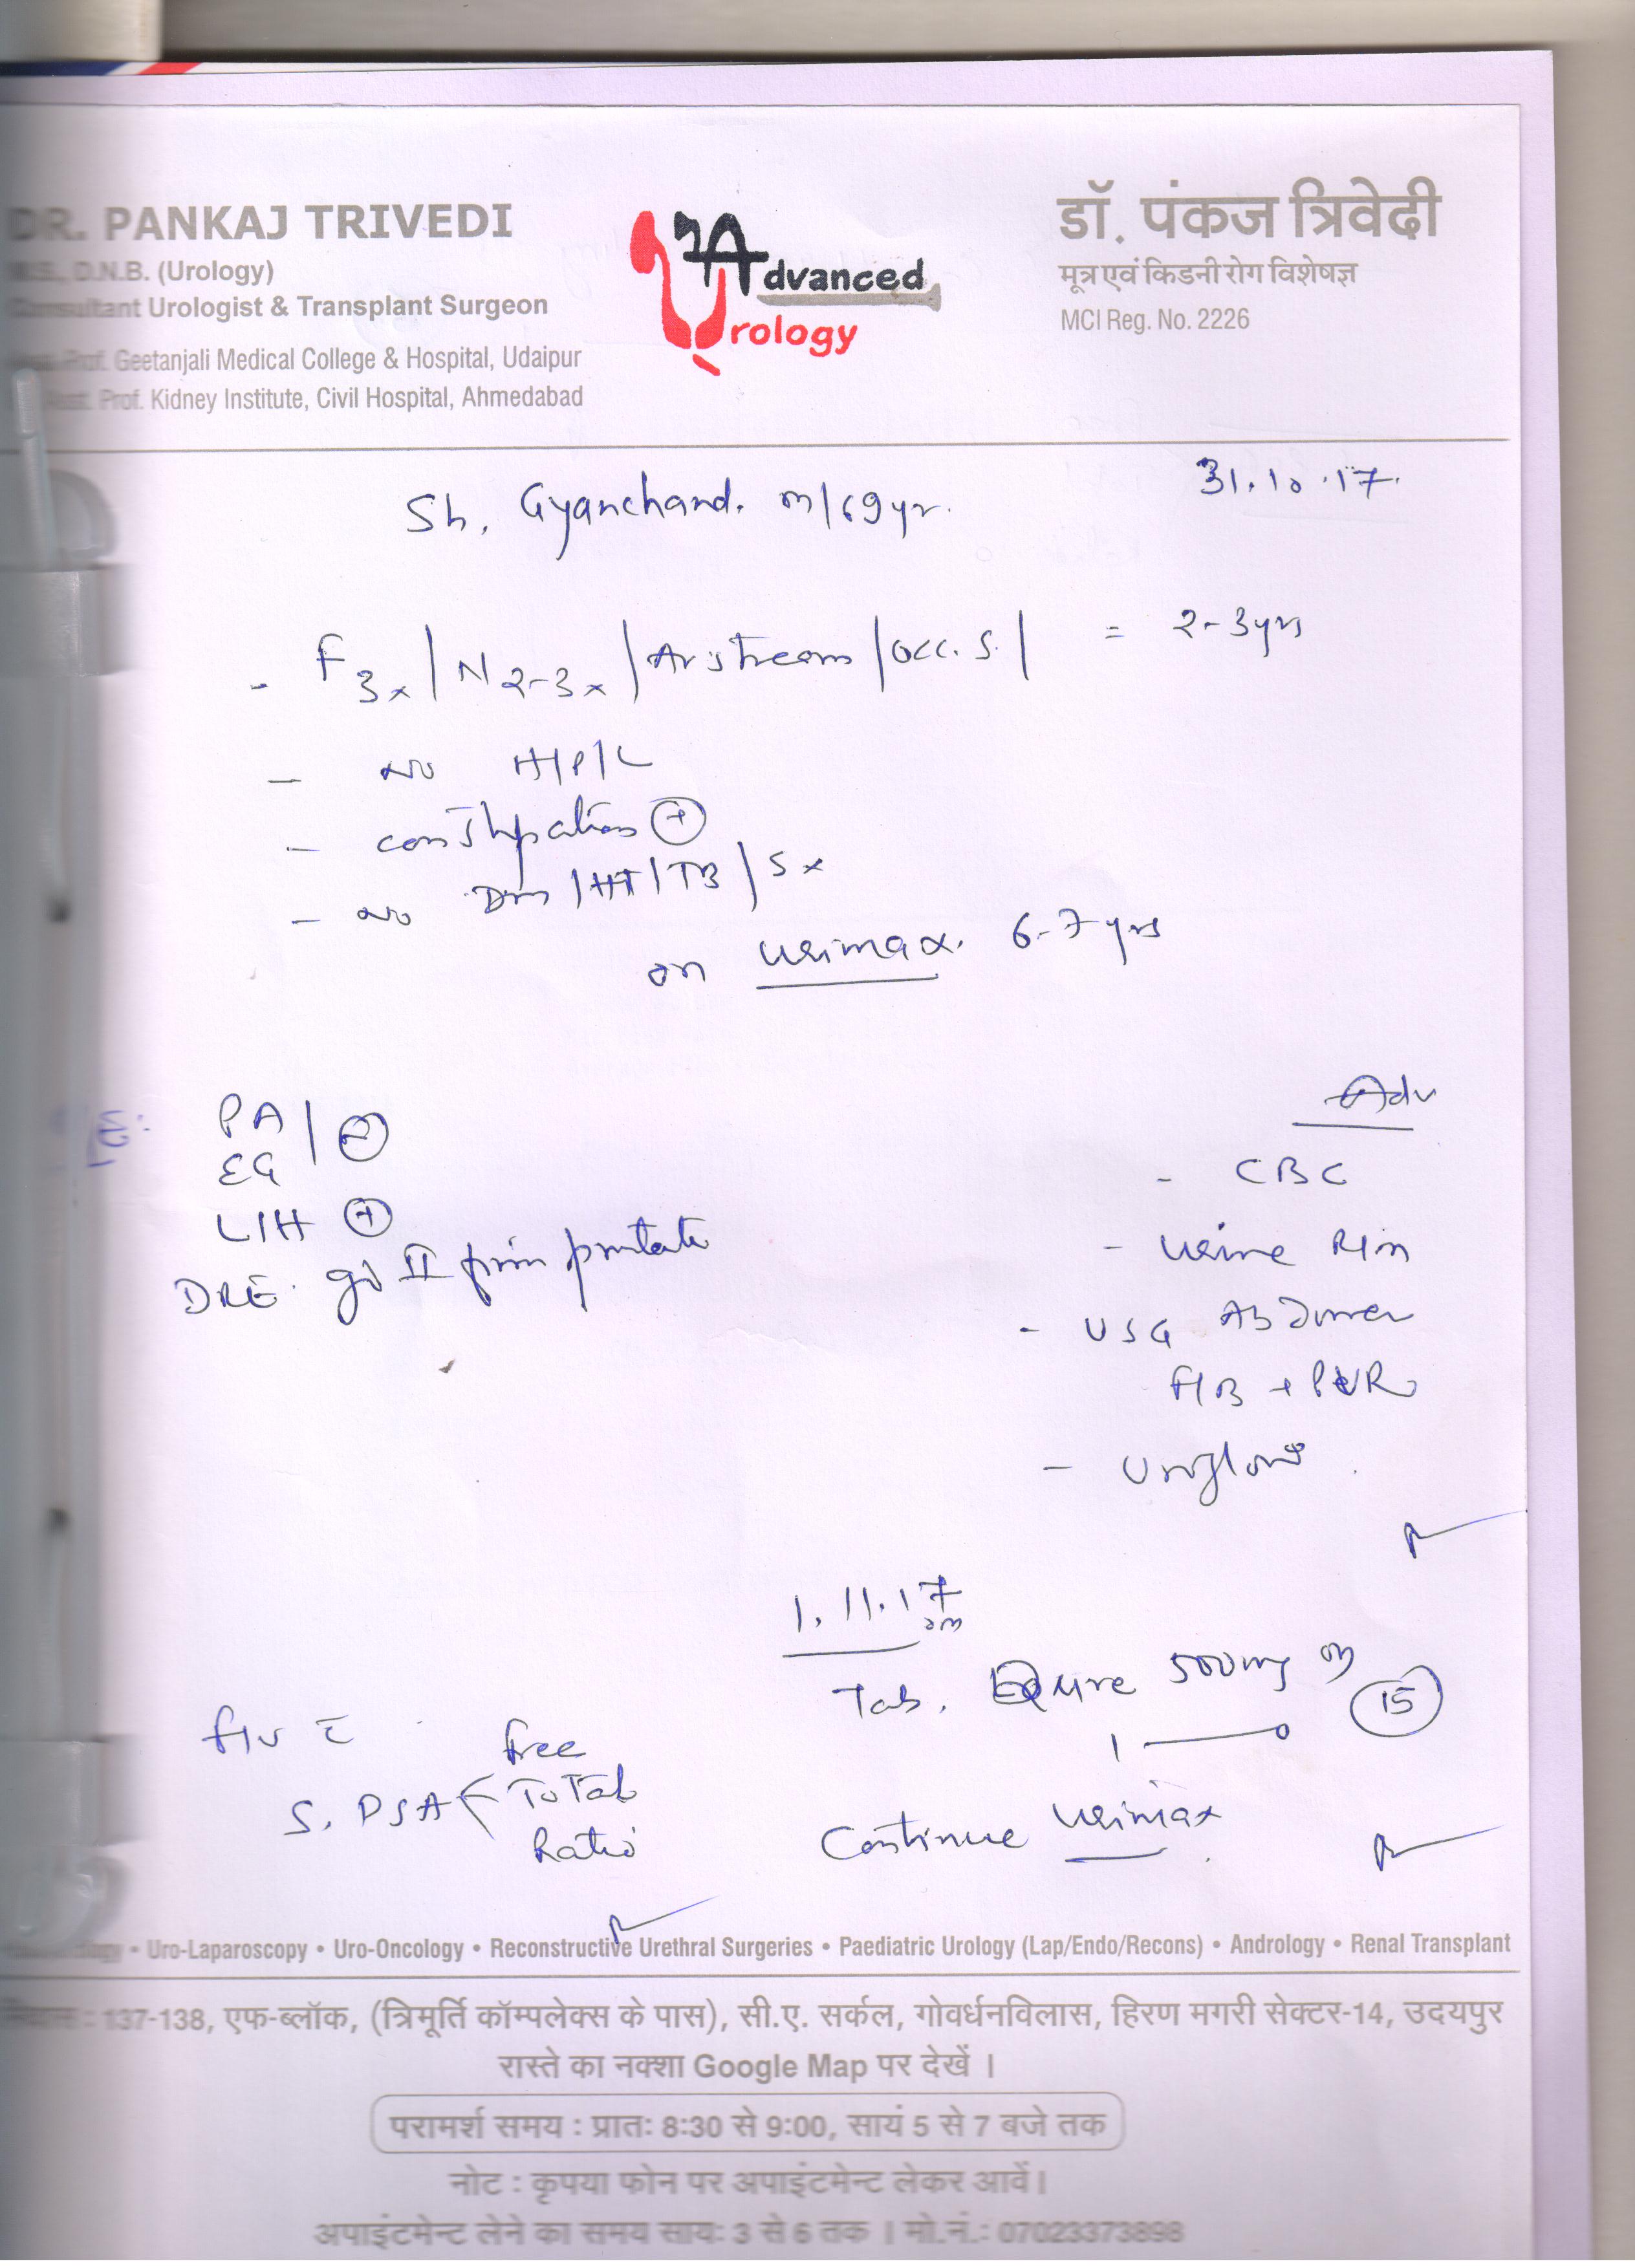 DR. PANKAJ TRIVEDI
M.S., D.N.B. (Urology)
Consultant Urologist & Transplant Surgeon
Prof. Geetanjali Medical College & Hospital, Udaipur
Prof. Kidney Institute, Civil Hospital, Ahmedabad
Advanced
Urology
डॉ. पंकज त्रिवेदी
मूत्र एवं किडनी रोग विशेषज्ञ
MCI Reg. No. 2226
31.10.17.
Sh. Gyanchand. m/69yr.
- F3x/N2-3x/Av stream/occ. S./ = 2-3yrs
- no H/P/L
- constipation +
- no Dm/HT/TB/Sx
on Urimax. 6-7yrs
PA/
EG
LIH +
DRE. gd II firm prostate
Adv
- CBC
- urine R/m
- USG Abdomen
F/B + PVR
- Uroflow
1.11.17
Tab. 500mg 15
1—0
Continue Urimax
f/u c̄
S. PSA < free
Total
Ratio
• Uro-Laparoscopy • Uro-Oncology • Reconstructive Urethral Surgeries • Paediatric Urology (Lap/Endo/Recons) • Andrology • Renal Transplant
137-138, एफ-ब्लॉक, (त्रिमूर्ति कॉम्पलेक्स के पास), सी.ए. सर्कल, गोवर्धनविलास, हिरण मगरी सेक्टर-14, उदयपुर
रास्ते का नक्शा Google Map पर देखें ।
परामर्श समय : प्रातः 8:30 से 9:00, सायं 5 से 7 बजे तक
नोट : कृपया फोन पर अपाइंटमेन्ट लेकर आवें।
अपाइंटमेन्ट लेने का समय सायः 3 से 6 तक । मो.नं.: 07023373898